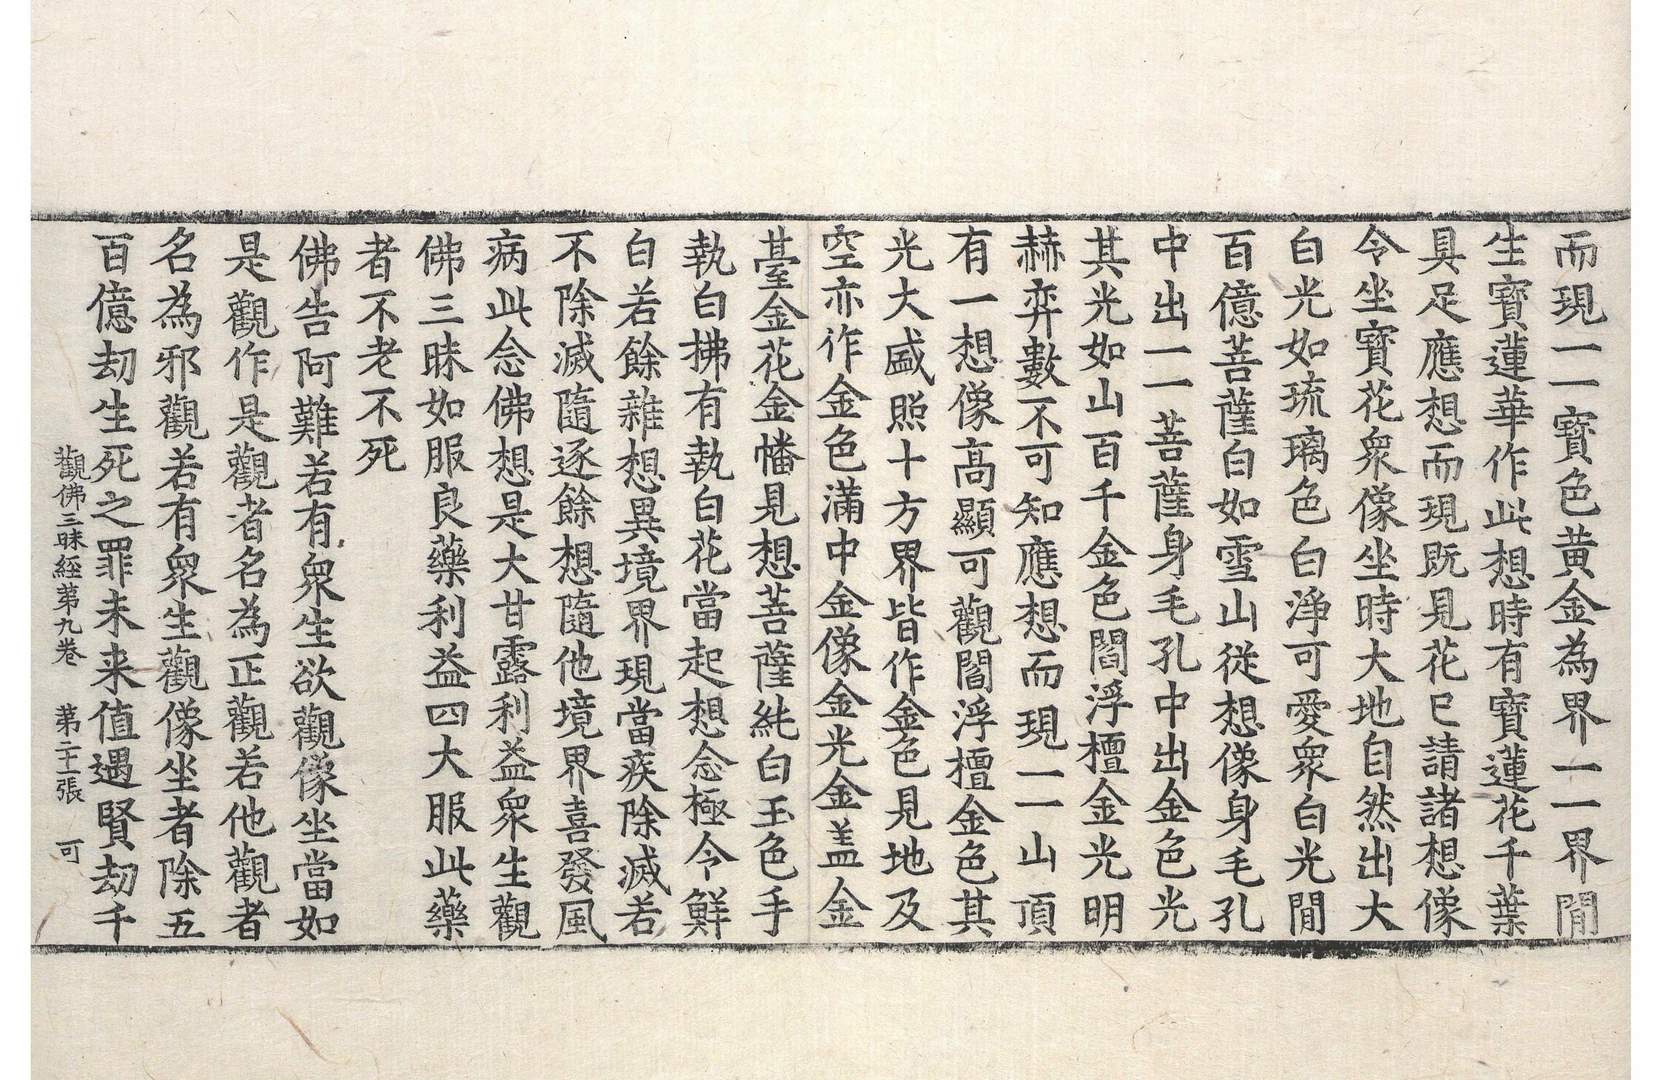 而現一一寶色黄金為界一一界閒
生寶蓮華作此想時有寶蓮花千葉
具足應想而現旣見花已請諸想像
令坐寶花衆像坐時大地自然出大
白光如琉璃色白淨可愛衆白光閒
百億菩薩白如雪山從想像身毛孔
中出一一菩薩身毛孔中出金色光
其光如山百千金色閻浮檀金光明
赫弈數不可知應想而現一一山頂
有一想像高顯可觀閻浮檀金色其
光大盛照十方界皆作金色見地及
空亦作金色滿中金像金光金盖金
臺金花金幡見想菩薩純白玉色手
執白拂有執白花當起想念極令鮮
白若餘雜想異境界現當疾除滅若
不除滅隨逐餘想隨他境界喜發風
病此念佛想是大甘露利益衆生觀
佛三昧如服良藥利益四大服此藥
者不老不死
佛告阿難若有衆生欲觀像坐當如
是觀作是觀者名為正觀若他觀者
名為邪觀若有衆生觀像坐者除五
百億劫生死之罪未来值遇賢劫千
觀佛三昧經第九卷 第二十一張 可